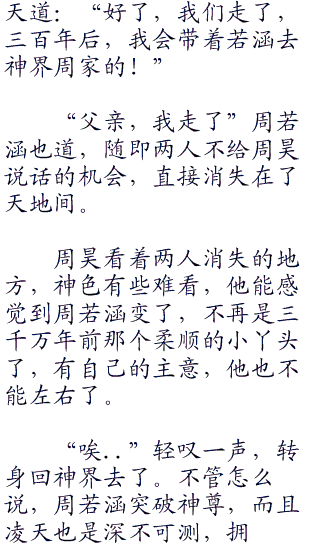 天道：“好了，我们走了，
三百年后，我会带着若涵去
神界周家的！”
“父亲，我走了”周若
涵也道，随即两人不给周昊
说话的机会，直接消失在了
天地间。
周昊看着两人消失的地
方，神色有些难看，他能感
觉到周若涵变了，不再是三
千万年前那个柔顺的小丫头
了，有自己的主意，他也不
能左右了。
“唉..”轻叹一声，转
身回神界去了。不管怎么
说，周若涵突破神尊，而且
凌天也是深不可测，拥